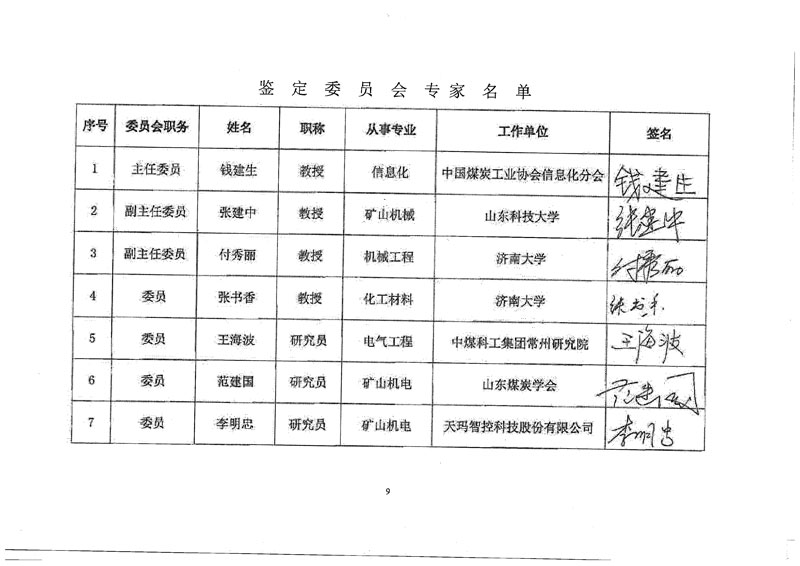 鉴定委员会专家名单
序号 委员会职务 姓名 职称 从事专业 工作单位 签名
1 主任委员 钱建生 教授 信息化 中国煤炭工业协会信息化分会 钱建生
2 副主任委员 张建中 教授 矿山机械 山东科技大学 张建中
3 副主任委员 付秀丽 教授 机械工程 济南大学 付秀丽
4 委员 张书香 教授 化工材料 济南大学 张书香
5 委员 王海波 研究员 电气工程 中煤科工集团常州研究院 王海波
6 委员 范建国 研究员 矿山机电 山东煤炭学会 范建国
7 委员 李明忠 研究员 矿山机电 天玛智控科技股份有限公司 李明忠
9